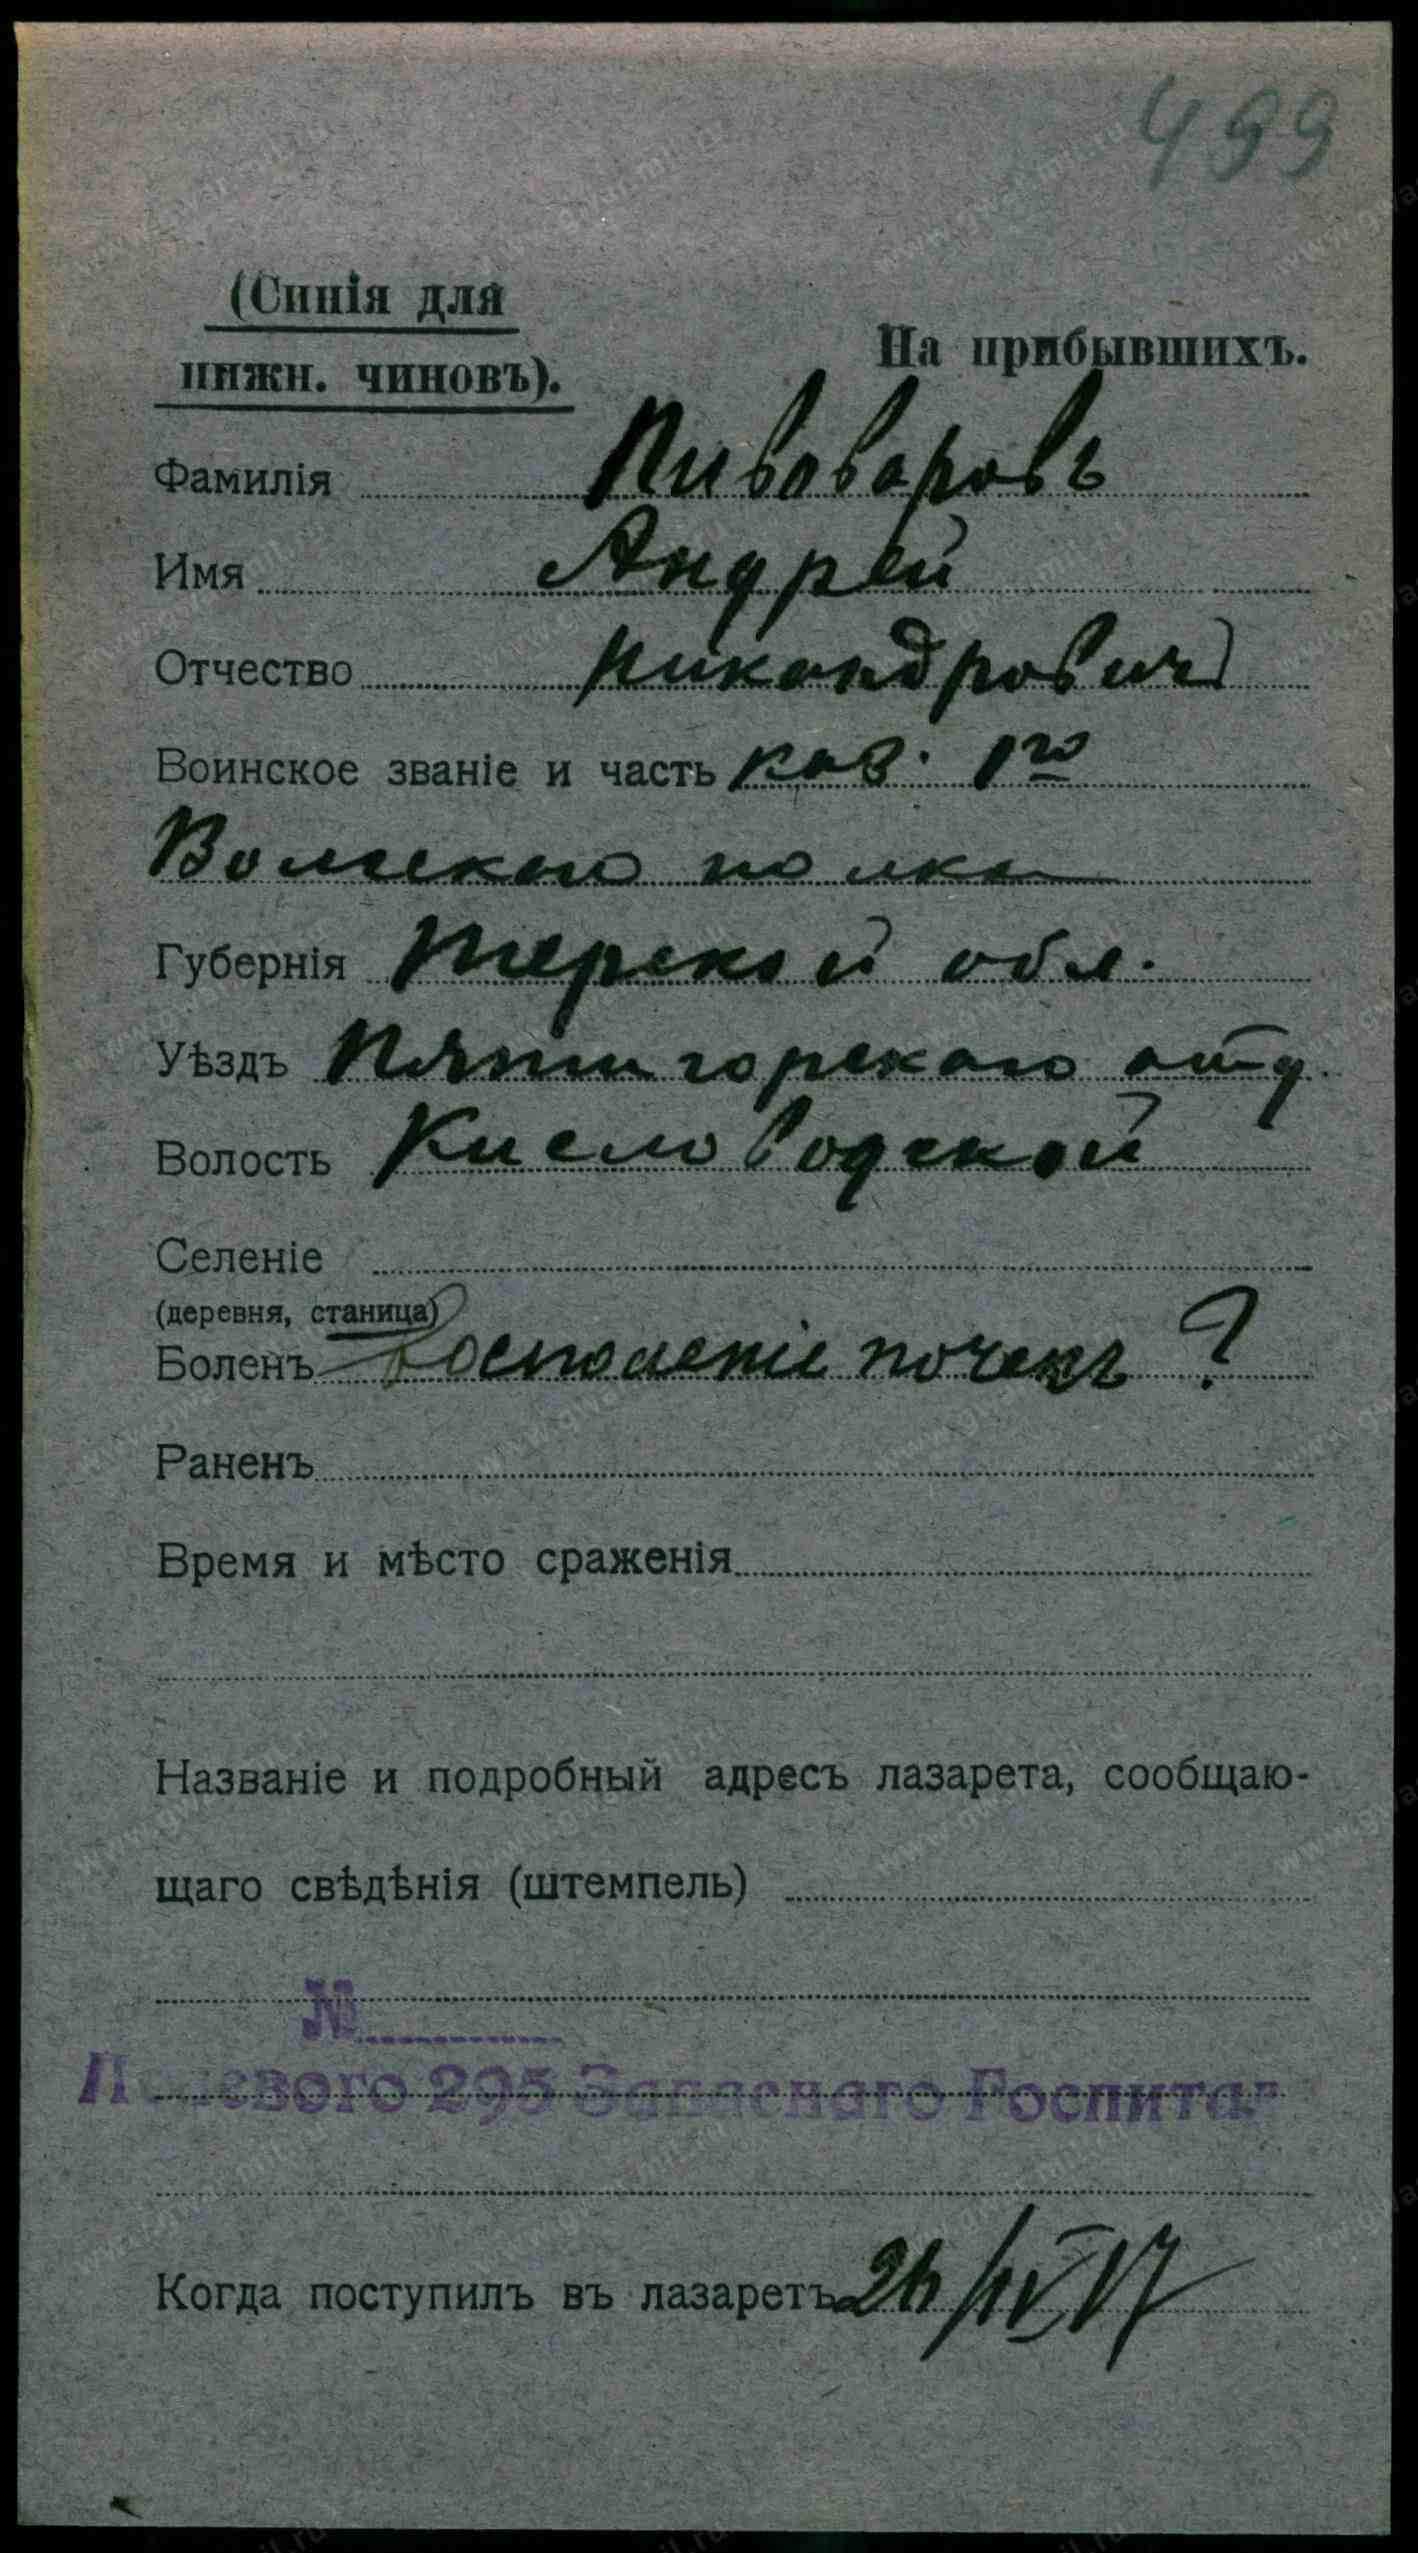 499
(Синія для
нижн. чиновъ).
На прибывшихъ.
Фамилія Пивоваровъ
Имя Андрей
Отчество Никандрович
Воинское званіе и часть каз. 1го
Волгскаго полка
Губернія Терской обл.
Уѣздъ Пятигорскаго отд.
Волость Кисловодской
Селеніе
(деревня, станица)
Боленъ воспаленіе почекъ ?
Раненъ
Время и мѣсто сраженія
Названіе и подробный адресъ лазарета, сообщаю-
щаго свѣдѣнія (штемпель)
№
Полевого 295 Запаснаго Госпитал
Когда поступилъ въ лазаретъ 26/IV 17
www.gwar.mil.ru